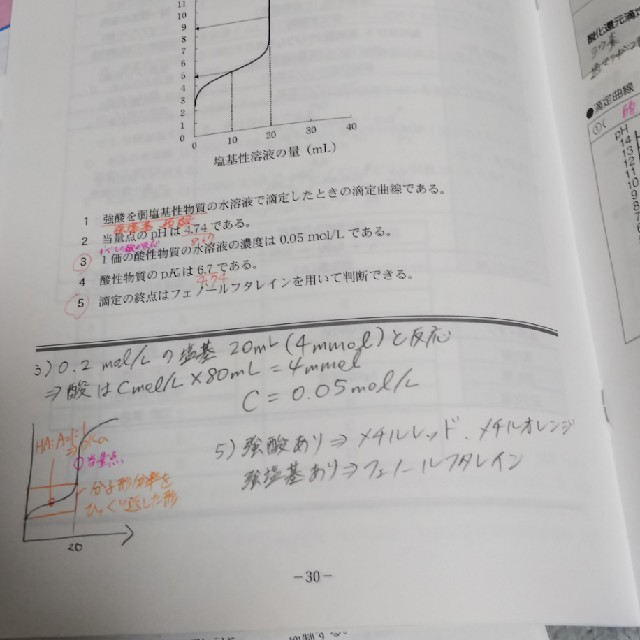 11
10
9
8
5
4
3
2
1
0
0 10 20 30 40
塩基性溶液の量 (mL)
1 強酸を弱塩基性物質の水溶液で滴定したときの滴定曲線である。
2 当量点の pH は 4.74 である。
3 1価の酸性物質の水溶液の濃度は 0.05 mol/L である。
4 酸性物質の pKは 6.7 である。
4.74
5 滴定の終点はフェノールフタレインを用いて判断できる。
3) 0.2 mol/L の塩基 20mL (4mmol) と反応
⇒ 酸は C mol/L × 80mL = 4mmol
C = 0.05mol/L
当量点
分子形分率を
ひっくり返した形
20
5) 強酸あり⇒メチルレッド、メチルオレンジ
強塩基あり⇒フェノールフタレイン
-30-
●滴定曲線
pH
14
13
12
11
10
9
8